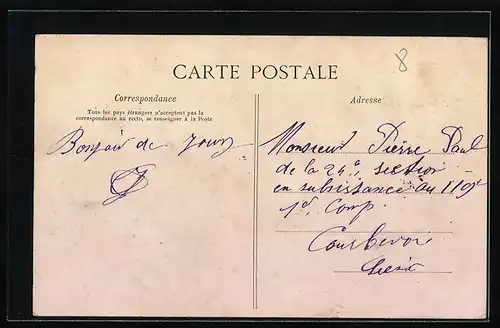 8
CARTE POSTALE
Correspondance
Tous les pays étrangers n'acceptent pas la
correspondance au recto, se renseigner à la Poste
Adresse
Bonjour de
Monsieur Pierre Paul
de la 24e section
en subsistance au 119e
1e Comp.
Courbevoie
Seine